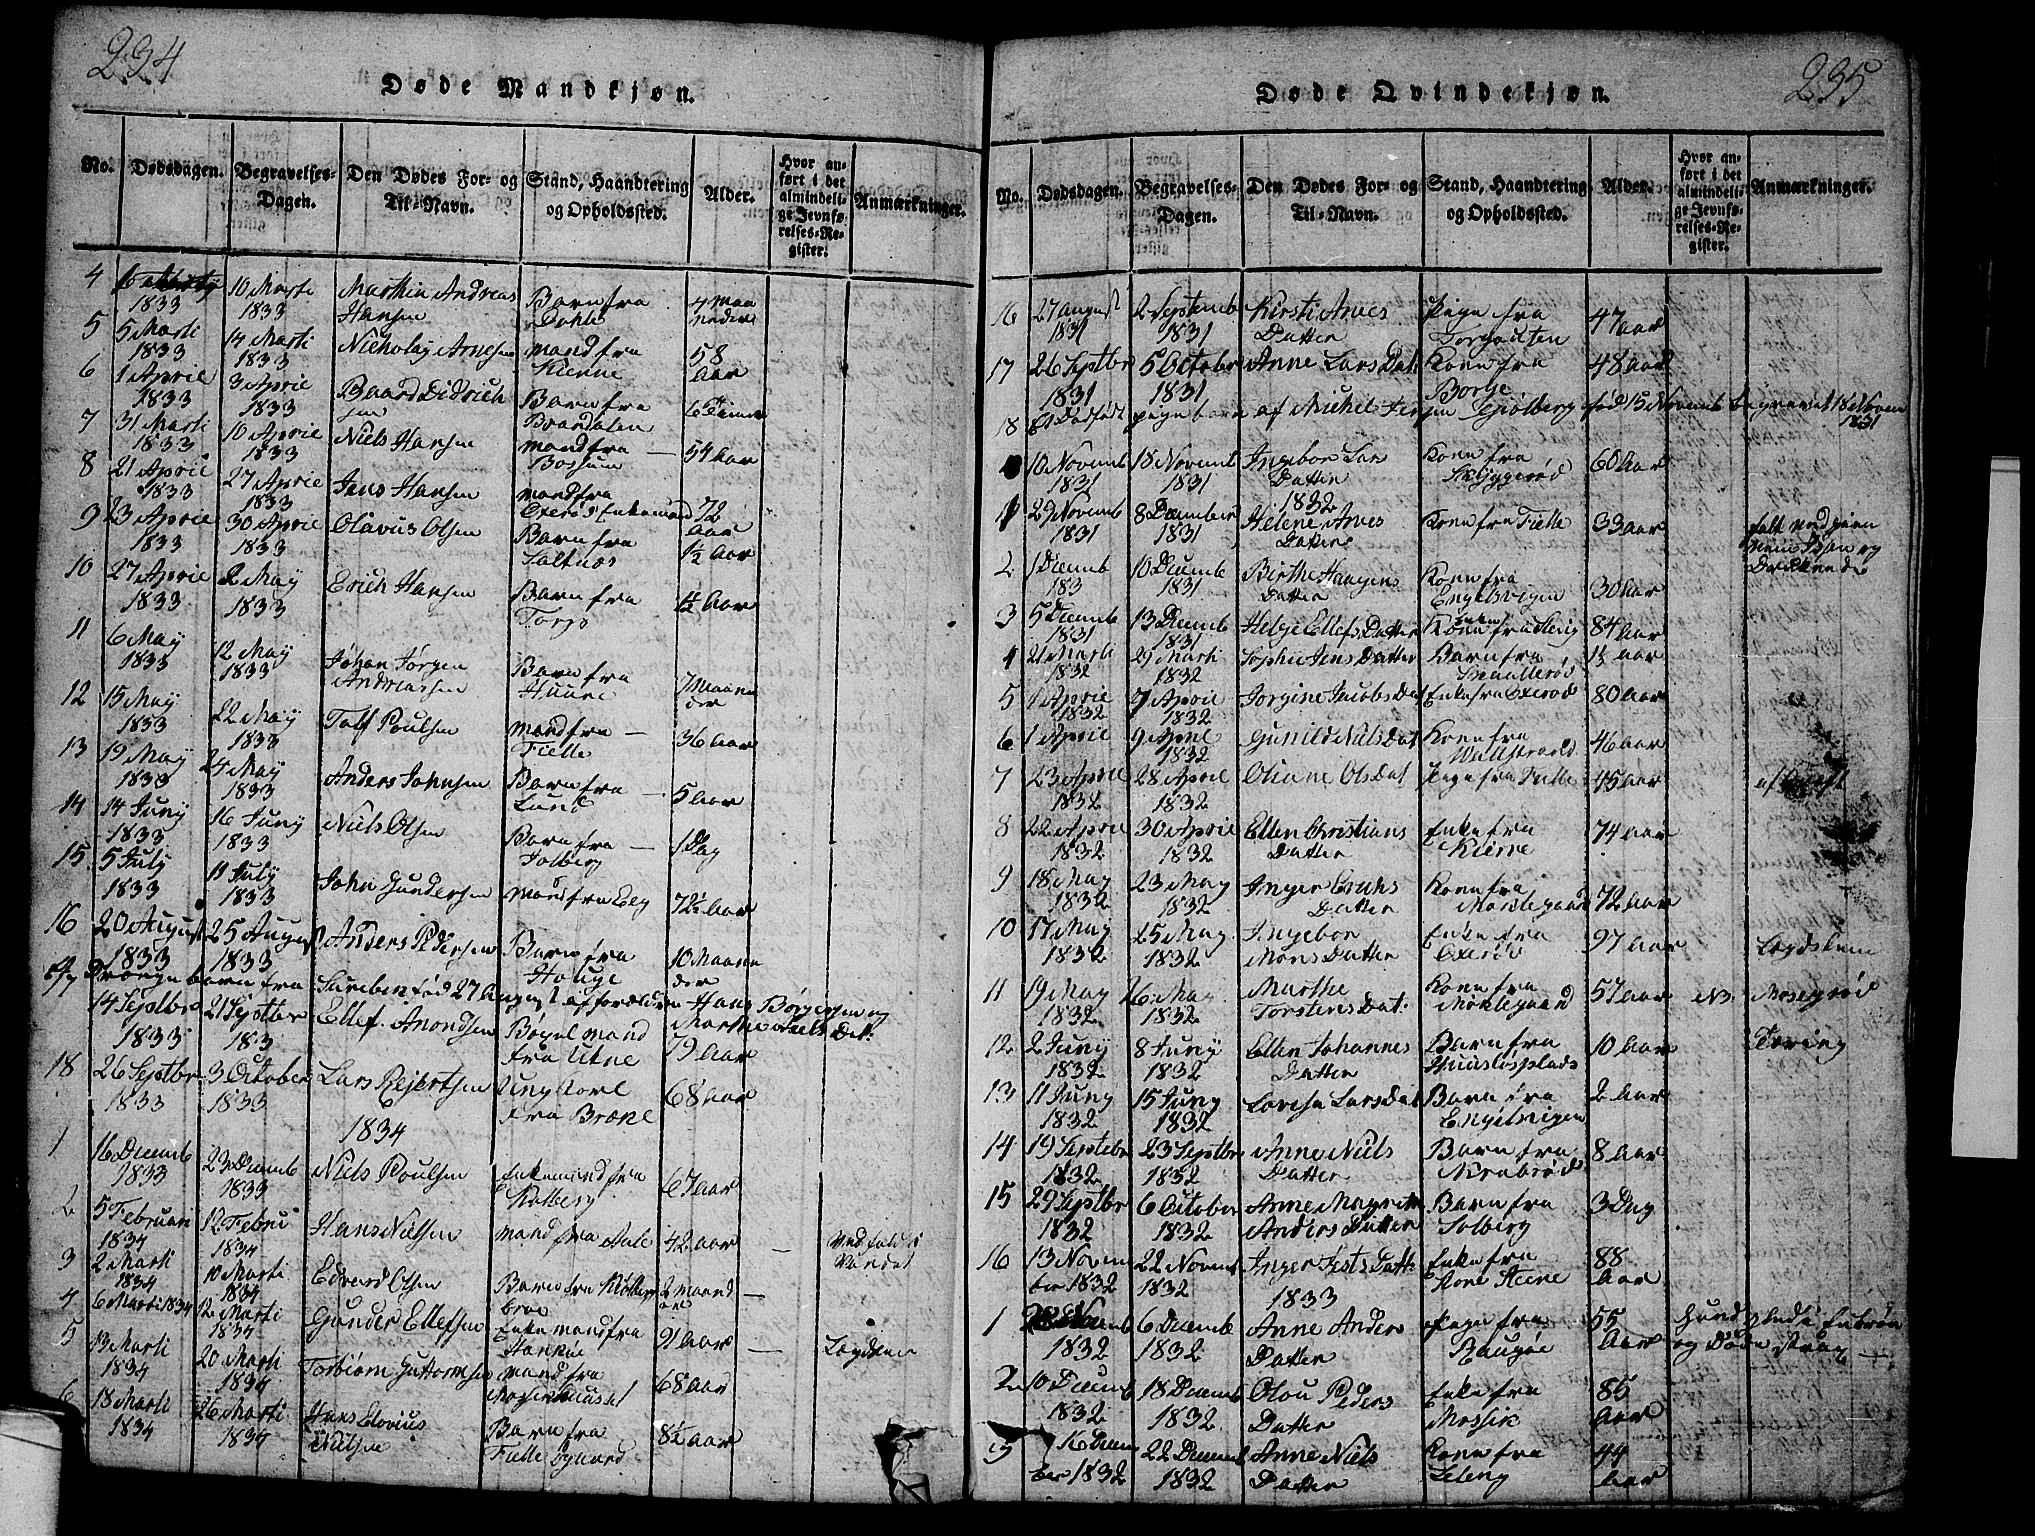 234
Døde Mandkjøn.
No. Dødsdagen. Begravelses-Dagen. Den Dødes For- og Til-Navn. Stand, Haandtering og Opholdssted. Alder. Hvor anført i det almindelige Jevnførelses-Register. Anmærkninger.
4 1833 10 Marti 1833 Marthin Andreas Hansen Barn fra Dahle 4 Maaneder
5 5 Marti 1833 14 Marti 1833 Nicholay Arnesen mand fra Kierre 58 Aar
6 1 Aprie 1833 3 Aprie 1833 Baard Didrichsen Barn fra Brardalen 6 Timer
7 31 Marti 1833 10 Aprie 1833 Niels Hansen mand fra Bossum 54 Aar
8 21 Aprie 1833 27 Aprie 1833 Jens Hansen mand fra Oxerød Enkemand 72 Aar
9 23 Aprie 1833 30 Aprie 1833 Olavus Olsen Barn fra Saltnøs 1½ Aar
10 27 Aprie 1833 2 May 1833 Erich Hansen Barn fra Torgo Aar
11 6 May 1833 12 May 1833 Johan Jørgen Andreassen Barn fra Huure 7 Maaneder
12 15 May 1833 22 May 1833 Tolf Poulsen mand fra Fielle 36 Aar
13 19 May 1833 24 May 1833 Anders Johnsen Barn fra Lund 5 Aar
14 14 Juny 1833 16 Juny 1833 Niels Olsen Barn fra Solberg 1 Dag
15 5 July 1833 11 July 1833 John Gundersen mand fra Elg 72½ Aar
16 20 August 1833 25 August 1833 Anders Pedersen Barn fra Houge 10 Maaneder
barn fra født 27 August af forældren Hans Børgersen og Marthe Niels Dat:
14 Septbr 1833 21 Septbr 183 Ellef Amondsen Bøgel mand fra Utne 79 Aar
18 26 Septbr 1833 3 October 1833 Lars Rejertsen Ungkarl fra Bræke 68 Aar
1834
1 16 Decemb 1833 23 Decemb 1833 Niels Poulsen Enkemand fra Kolberg 67 Aar
2 5 Februari 1834 12 Februi 1834 Hans Nielsen mand fra Aale 42 Aar
3 2 Marti 1834 10 Marti 1834 Edvard Olsen Barn fra 2 Maaneder
4 6 Marti 1834 12 Marti 1834 Gunder Ellefsen Enkemand fra Hankø 91 Aar Lægdslem
5 13 Marti 1834 20 Marti 1834 Torbiørn Guttormsen mand fra 68 Aar
6 18 Marti 1834 26 Marti 1834 Hans Elovius Nielsen Barn fra Fielle øgaard 8½ Aar
235
Døde Qvindekjøn.
No. Dødsdagen. Begravelses-Dagen. Den Dødes For- og Til-Navn. Stand, Haandtering og Opholdssted. Alder. Hvor anført i det almindelige Jevnførelses-Register. Anmærkninger.
16 27 august 1831 2 Septemb 1831 Kirsti Arnes Datter Pige fra Torgouten 47 aar
17 26 Septbr 1831 5 October 1831 Anne Lars Dat: Kone fra Borge 48 aar
18 Et Dødfødt pigebarn af Michel Jensen Sjøolberg fød 15 Novemb begravet 18 Novem 1831
10 Novemb 1831 18 Novemb 1831 Ingebor Lars Datter Kone fra Skyggerød 60 Aar
1832
1 29 Novemb 1831 8 December 1831 Helene Arnes Datter Kone fra Fielle 33 aar falt ned giennem Isen og Druknede
2 1 Decemb 183 10 Decemb 1831 Birthe Haagens Datter Kone fra Engelsvigen 30 Aar
3 5 Decemb 1831 13 Decemb 1831 Helje Ellefs Datter Kone fra 84 Aar
4 21 Marti 1832 29 Marti 1832 Sophie Jens Datter Barn fra Smaullerød aar
5 1 Aprie 1832 7 Aprie 1832 Jorgine Jacobs Dat Enke fra Oxerød 80 aar
6 1 Aprie 1832 9 Aprie 1832 Gunild Niels Dat Kone fra Wallstrand 46 aar
7 23 Aprie 1832 28 Aprie 1832 Oliane Ols Dat Pige fra Fielle 45 aar
8 22 Aprie 1832 30 Aprie 1832 Ellen Christians Datter Enke fra Kierre 74 aar
9 18 May 1832 23 May 1832 Inger Erichs Datter Kone fra Mørkegaard 72 Aar
10 17 May 1832 25 May 1832 Ingebor Møns Datter Enke fra Oxerød 97 aar Lægdslem
11 19 May 1832 26 May 1832 Marthe Torstens Dat: Kone fra Mørkegaard 57 aar N: Mosegrød
12 2 Juny 1832 8 Juny 1832 Ellen Johannes Datter Barn fra Huusløsplads 10 Aar Tæring
13 11 Juny 1832 15 Juny 1832 Lovisa Lars Dat Barn fra Engelsvigen 2 Aar
14 19 Septebr 1832 23 Septbr 1832 Anne Niels Datter Barn fra Krabrød 8 aar
15 29 Septbr 1832 6 October 1832 Anne Magrethe Anders Datter Barn fra Solberg 3 Dag
16 13 November 1832 22 Novemb 1832 Inger Justs Datt: Enke fra Store Steene 88 Aar
1833
1 28 Novemb 1832 6 Decemb 1832 Anne Anders Datter Pige fra Raugøe 55 Aar
2 10 Decemb 1832 18 Decemb 1832 Olou Peders Datter Enke fra Mossik 85 Aar
3 16 December 1832 22 Decemb 1832 Anne Niels Datter Kone fra Leleng 44 Aar